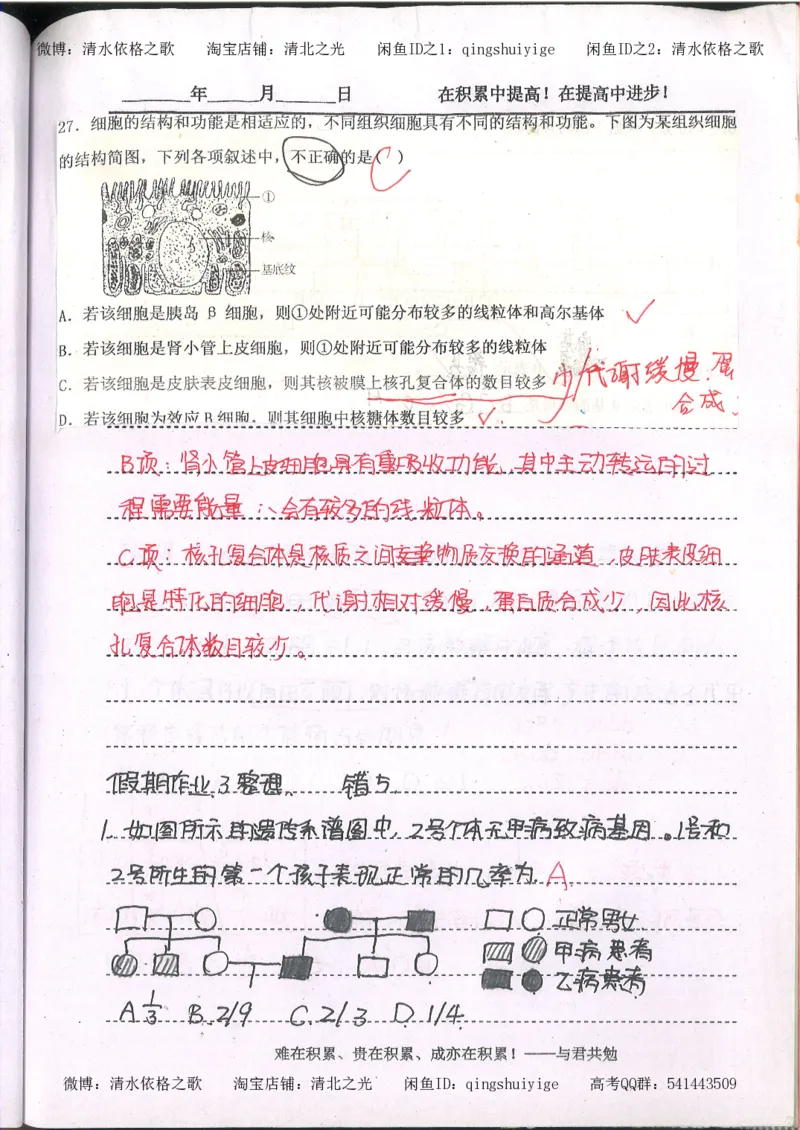 微博：清水依格之歌 淘宝店铺：清北之光 闲鱼ID之1：qingshuiyige 闲鱼ID之2：清水依格之歌
年 月 日 在积累中提高！在提高中进步！
27．细胞的结构和功能是相适应的，不同组织细胞具有不同的结构和功能。下图为某组织细胞
的结构简图，下列各项叙述中，不正确的是（ C ）
①
核
基底纹
A．若该细胞是胰岛 β 细胞，则①处附近可能分布较多的线粒体和高尔基体
B．若该细胞是肾小管上皮细胞，则①处附近可能分布较多的线粒体
C．若该细胞是皮肤表皮细胞，则其核被膜上核孔复合体的数目较多 小 代谢缓慢.蛋
合成
D．若该细胞为效应B细胞，则其细胞中核糖体数目较多
B项：肾小管上皮细胞具有重吸收功能，其中主动转运的过
程需要能量∴会有较多的线粒体。
C项：核孔复合体是核质之间物质交换的通道，皮肤表皮细
胞是特化的细胞，代谢相对缓慢，蛋白质合成少，因此核
孔复合体数目较少。
假期作业3整理、 错5
1. 如图所示的遗传系谱图中，2号个体无甲病致病基因。1号和
2号所生的第一个孩子表现正常的几率为 A.
正常男女
甲病患者
乙病患者
A.1/3 B.2/9 C.2/3 D.1/4.
难在积累、贵在积累、成亦在积累！——与君共勉
微博：清水依格之歌 淘宝店铺：清北之光 闲鱼ID：qingshuiyige 高考QQ群：541443509